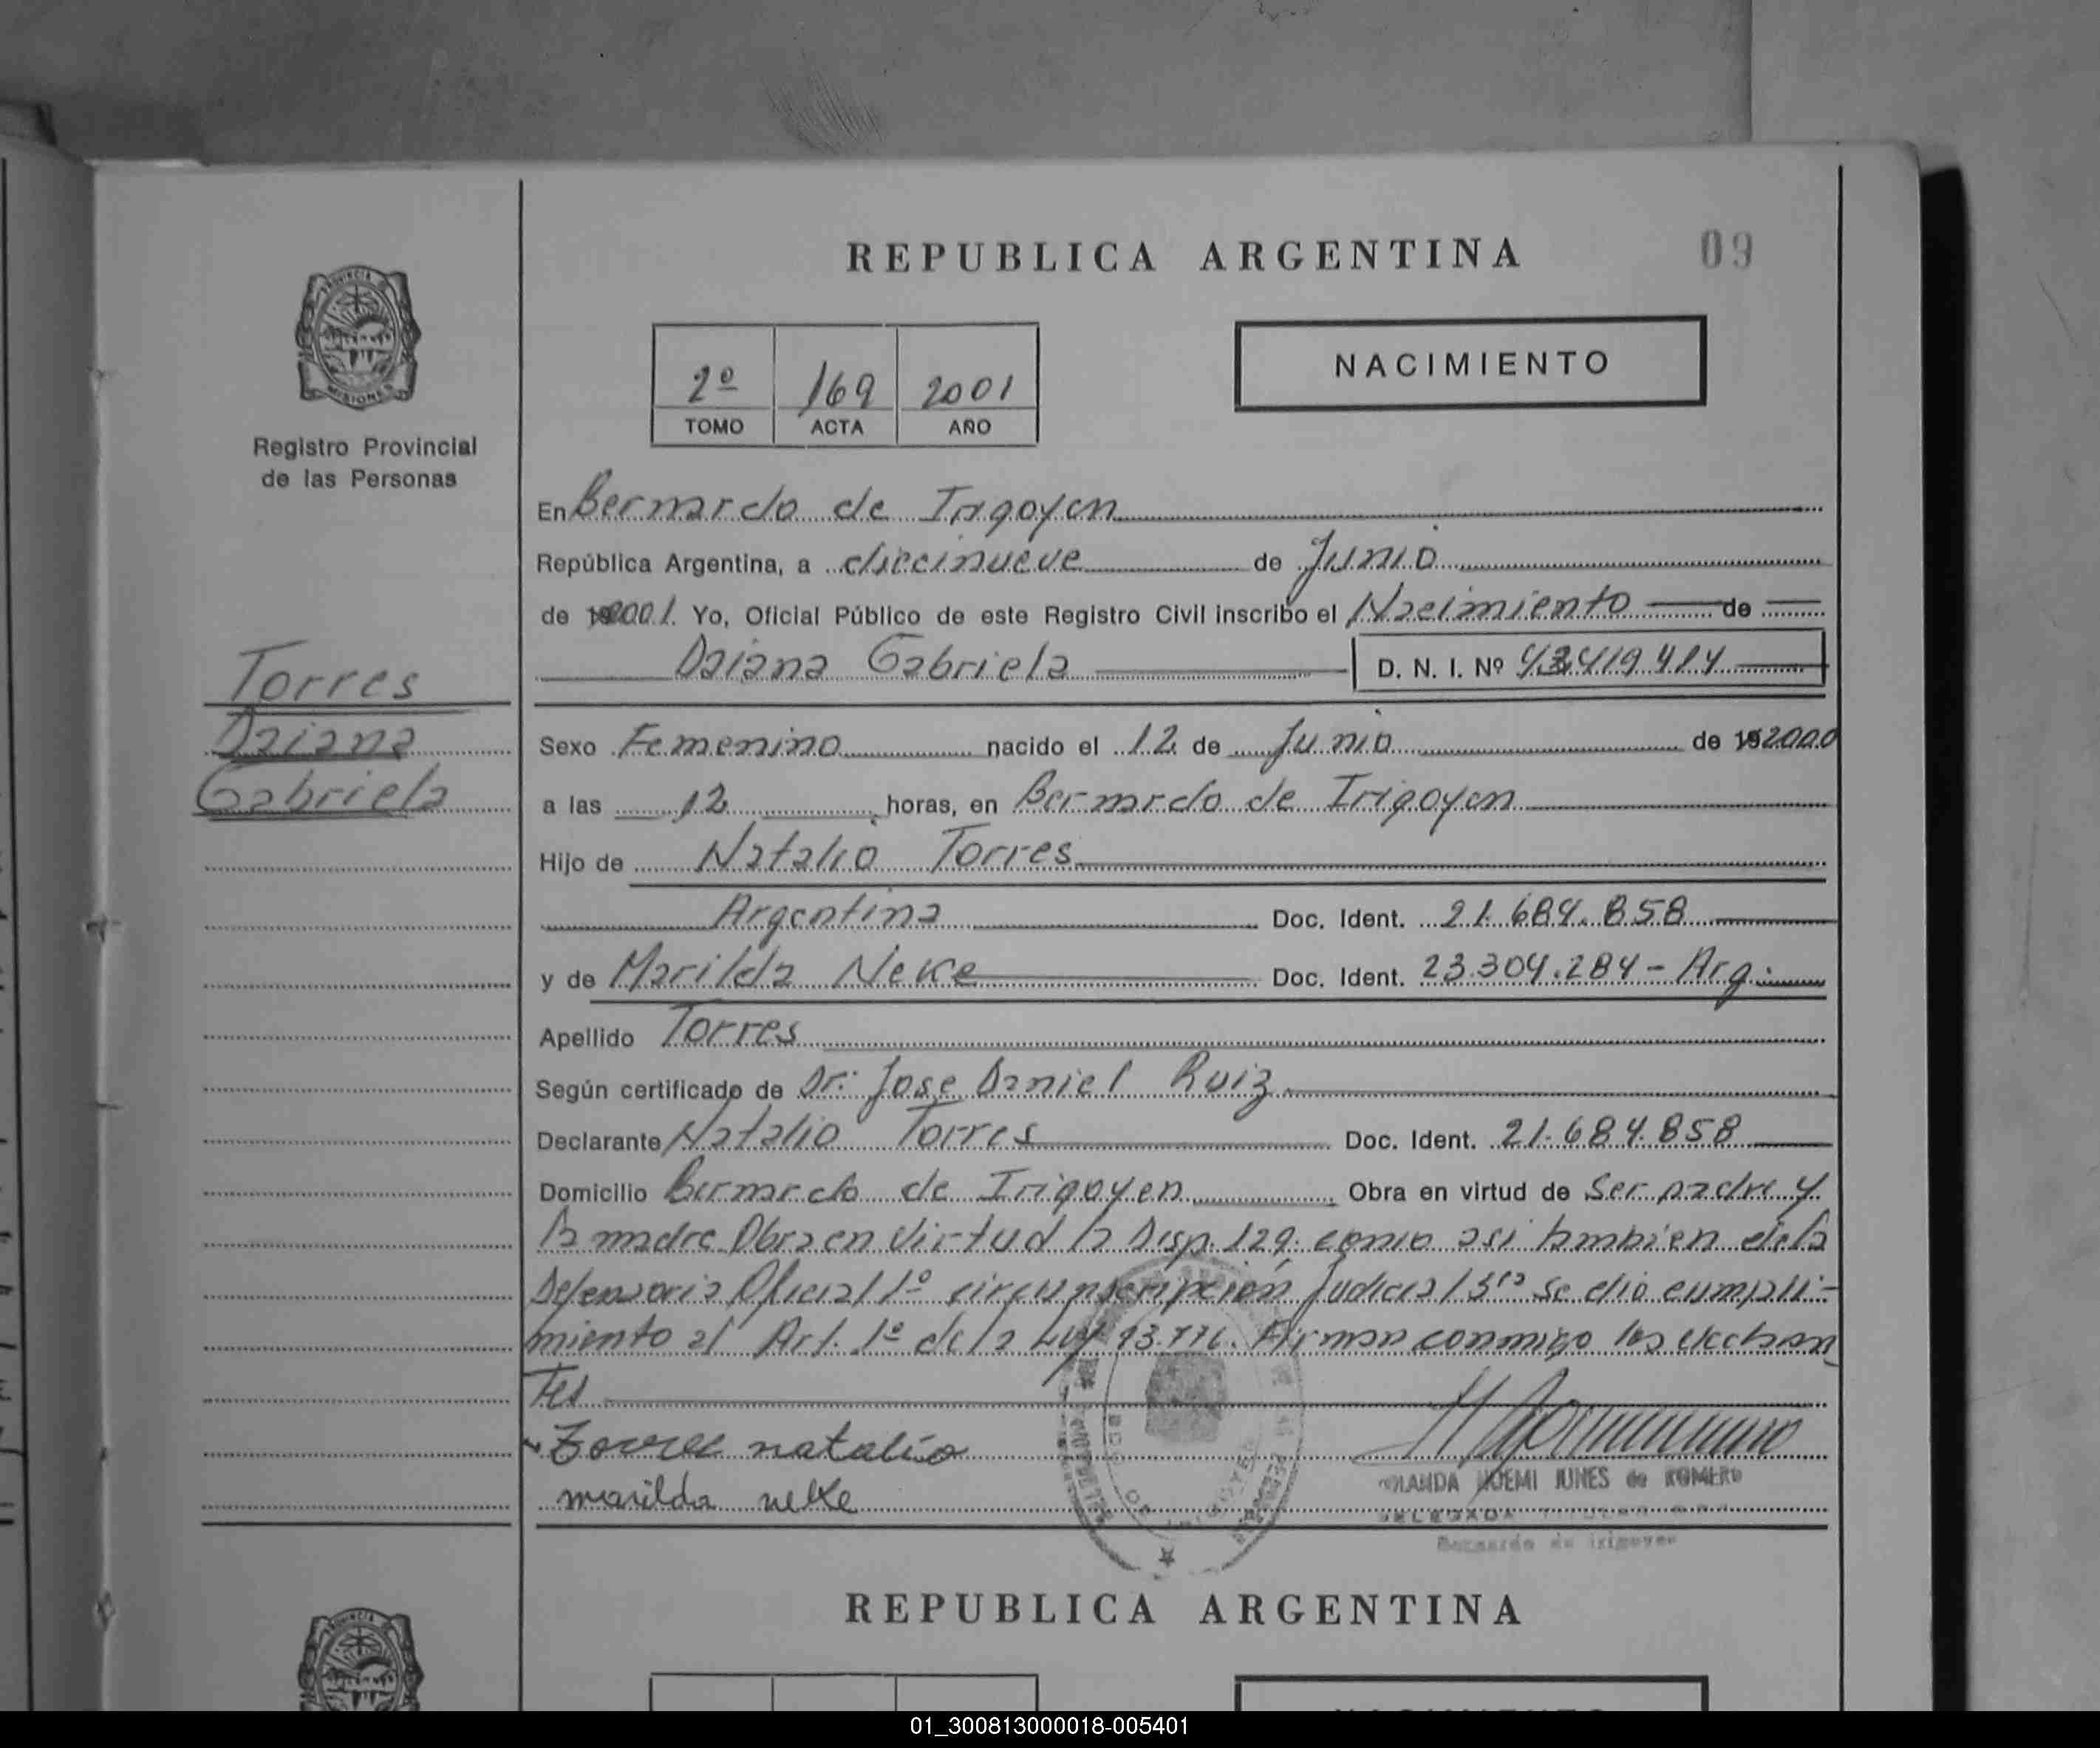 REPUBLICA ARGENTINA
09
PROVINCIA
MISIONES
Registro Provincial
de las Personas
2º 169 2001
TOMO ACTA AÑO
NACIMIENTO
En Bernardo de Irigoyen
República Argentina, a diecinueve de Junio
de 2001. Yo, Oficial Público de este Registro Civil inscribo el Nacimiento de
Daiana Gabriela D. N. I. Nº 43.419.414
Torres
Daiana
Gabriela
Sexo Femenino nacido el 12 de Junio de 2000
a las 12 horas, en Bernardo de Irigoyen
Hijo de Natalio Torres
Argentina Doc. Ident. 21.684.858
y de Marilda Neke Doc. Ident. 23.304.284 - Arg.
Apellido Torres
Según certificado de Dr. Jose Daniel Ruiz
Declarante Natalio Torres Doc. Ident. 21.684.858
Domicilio Bernardo de Irigoyen Obra en virtud de Ser padre y
la madre Obra en Virtud la Disp. 129. como asi tambien de la
Defensoria Oficial 1º circunscripción Judicial 3ra se dio cumpli-
miento al Art. 1º de la Ley 23.776. Firman conmigo los declaran
tes
Torres natalio
marilda nelke
YOLANDA NOEMI JUNES de ROMERO
DELEGADA TITULAR
Bernardo de Irigoyen
REPUBLICA ARGENTINA
01_300813000018-005401